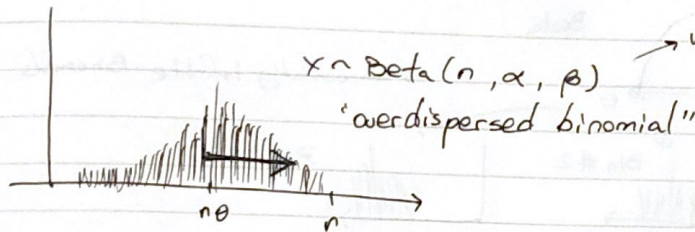 X ~ Beta(n, α, β)
"overdispersed binomial"
nθ
n